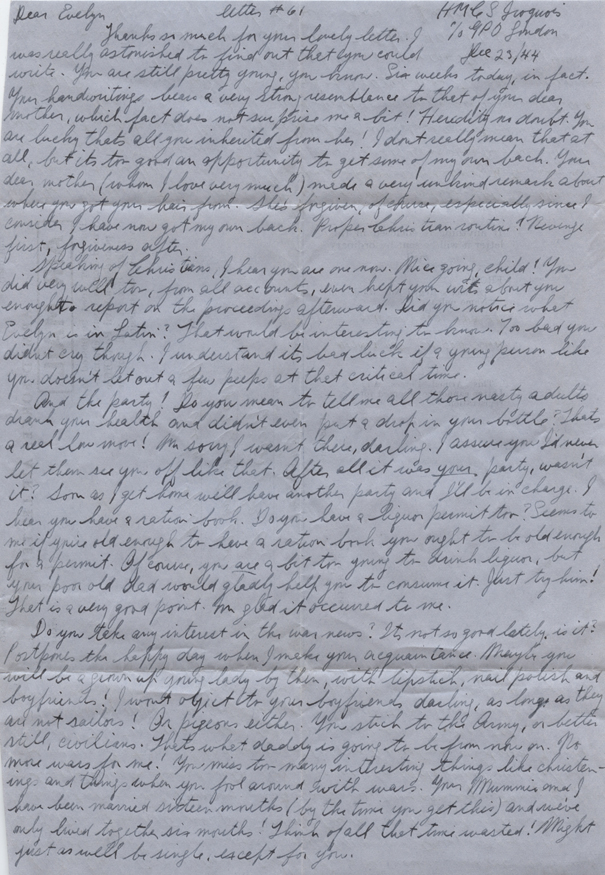 Dear Evelyn letter #61 H.M.C.S. Iroquois
Thanks so much for your lovely letter. I c/o GPO London
was really astonished to find out that you could Dec 23/44
write. You are still pretty young, you know. Six weeks today, in fact.
Your handwritings bears a very strong resemblance to that of your dear
mother, which fact does not surprise me a bit! Heredity no doubt. You
are lucky thats all you inherited from her! I dont really mean that at
all, but its too good an opportunity to get some of my own back. Your
dear mother (whom I love very much) made a very unkind remark about
where you got your hair from. She's forgiven, of course, especially since I
consider I have now got my own back. Proper Christian routine! Revenge
first, forgiveness after.
Speaking of Christians, I hear you are one now. Nice going, child! You
did very well too, from all accounts, even kept your wits about you
enough to report on the proceedings afterward. Did you notice what
Evelyn is in Latin? That would be interesting to know. Too bad you
didn't cry though. I understand its bad luck if a young person like
you doesn't let out a few peeps at that critical time.
And the party! Do you mean to tell me all those nasty adults
drank your health and didn't even put a drop in your bottle? Thats
a real low move! Im sorry I wasn't there, darling. I assure you I'd never
let them see you off like that. After all it was your party, wasn't
it? Soon as I get home we'll have another party and I'll be in charge. I
hear you have a ration book. Do you have a liquor permit too? Seems to
me if you're old enough to have a ration book you ought to be old enough
for a permit. Of course, you are a bit too young to drink liquor, but
your poor old dad would gladly help you to consume it. Just try him!
That is a very good point. Im glad it occurred to me.
Do you take any interest in the war news? It, not so good lately, is it?
Postpones the happy day when I make your acquaintance. Maybe you
will be a grown up young lady by then, with lipstick, nail polish and
boyfriends! I wont object to your boyfriends, darling, as long as they
are not sailors! Or pigeons either. You stick to the Army, or better
still, civilians. Thats what daddy is going to be from now on. No
more wars for me! You miss too many interesting things like christen-
ings and things when you fool around with wars. Your Mummie and I
have been married sixteen months (by the time you get this) and we've
only lived together six months! Think of all that time wasted! Might
just as well be single, except for you.